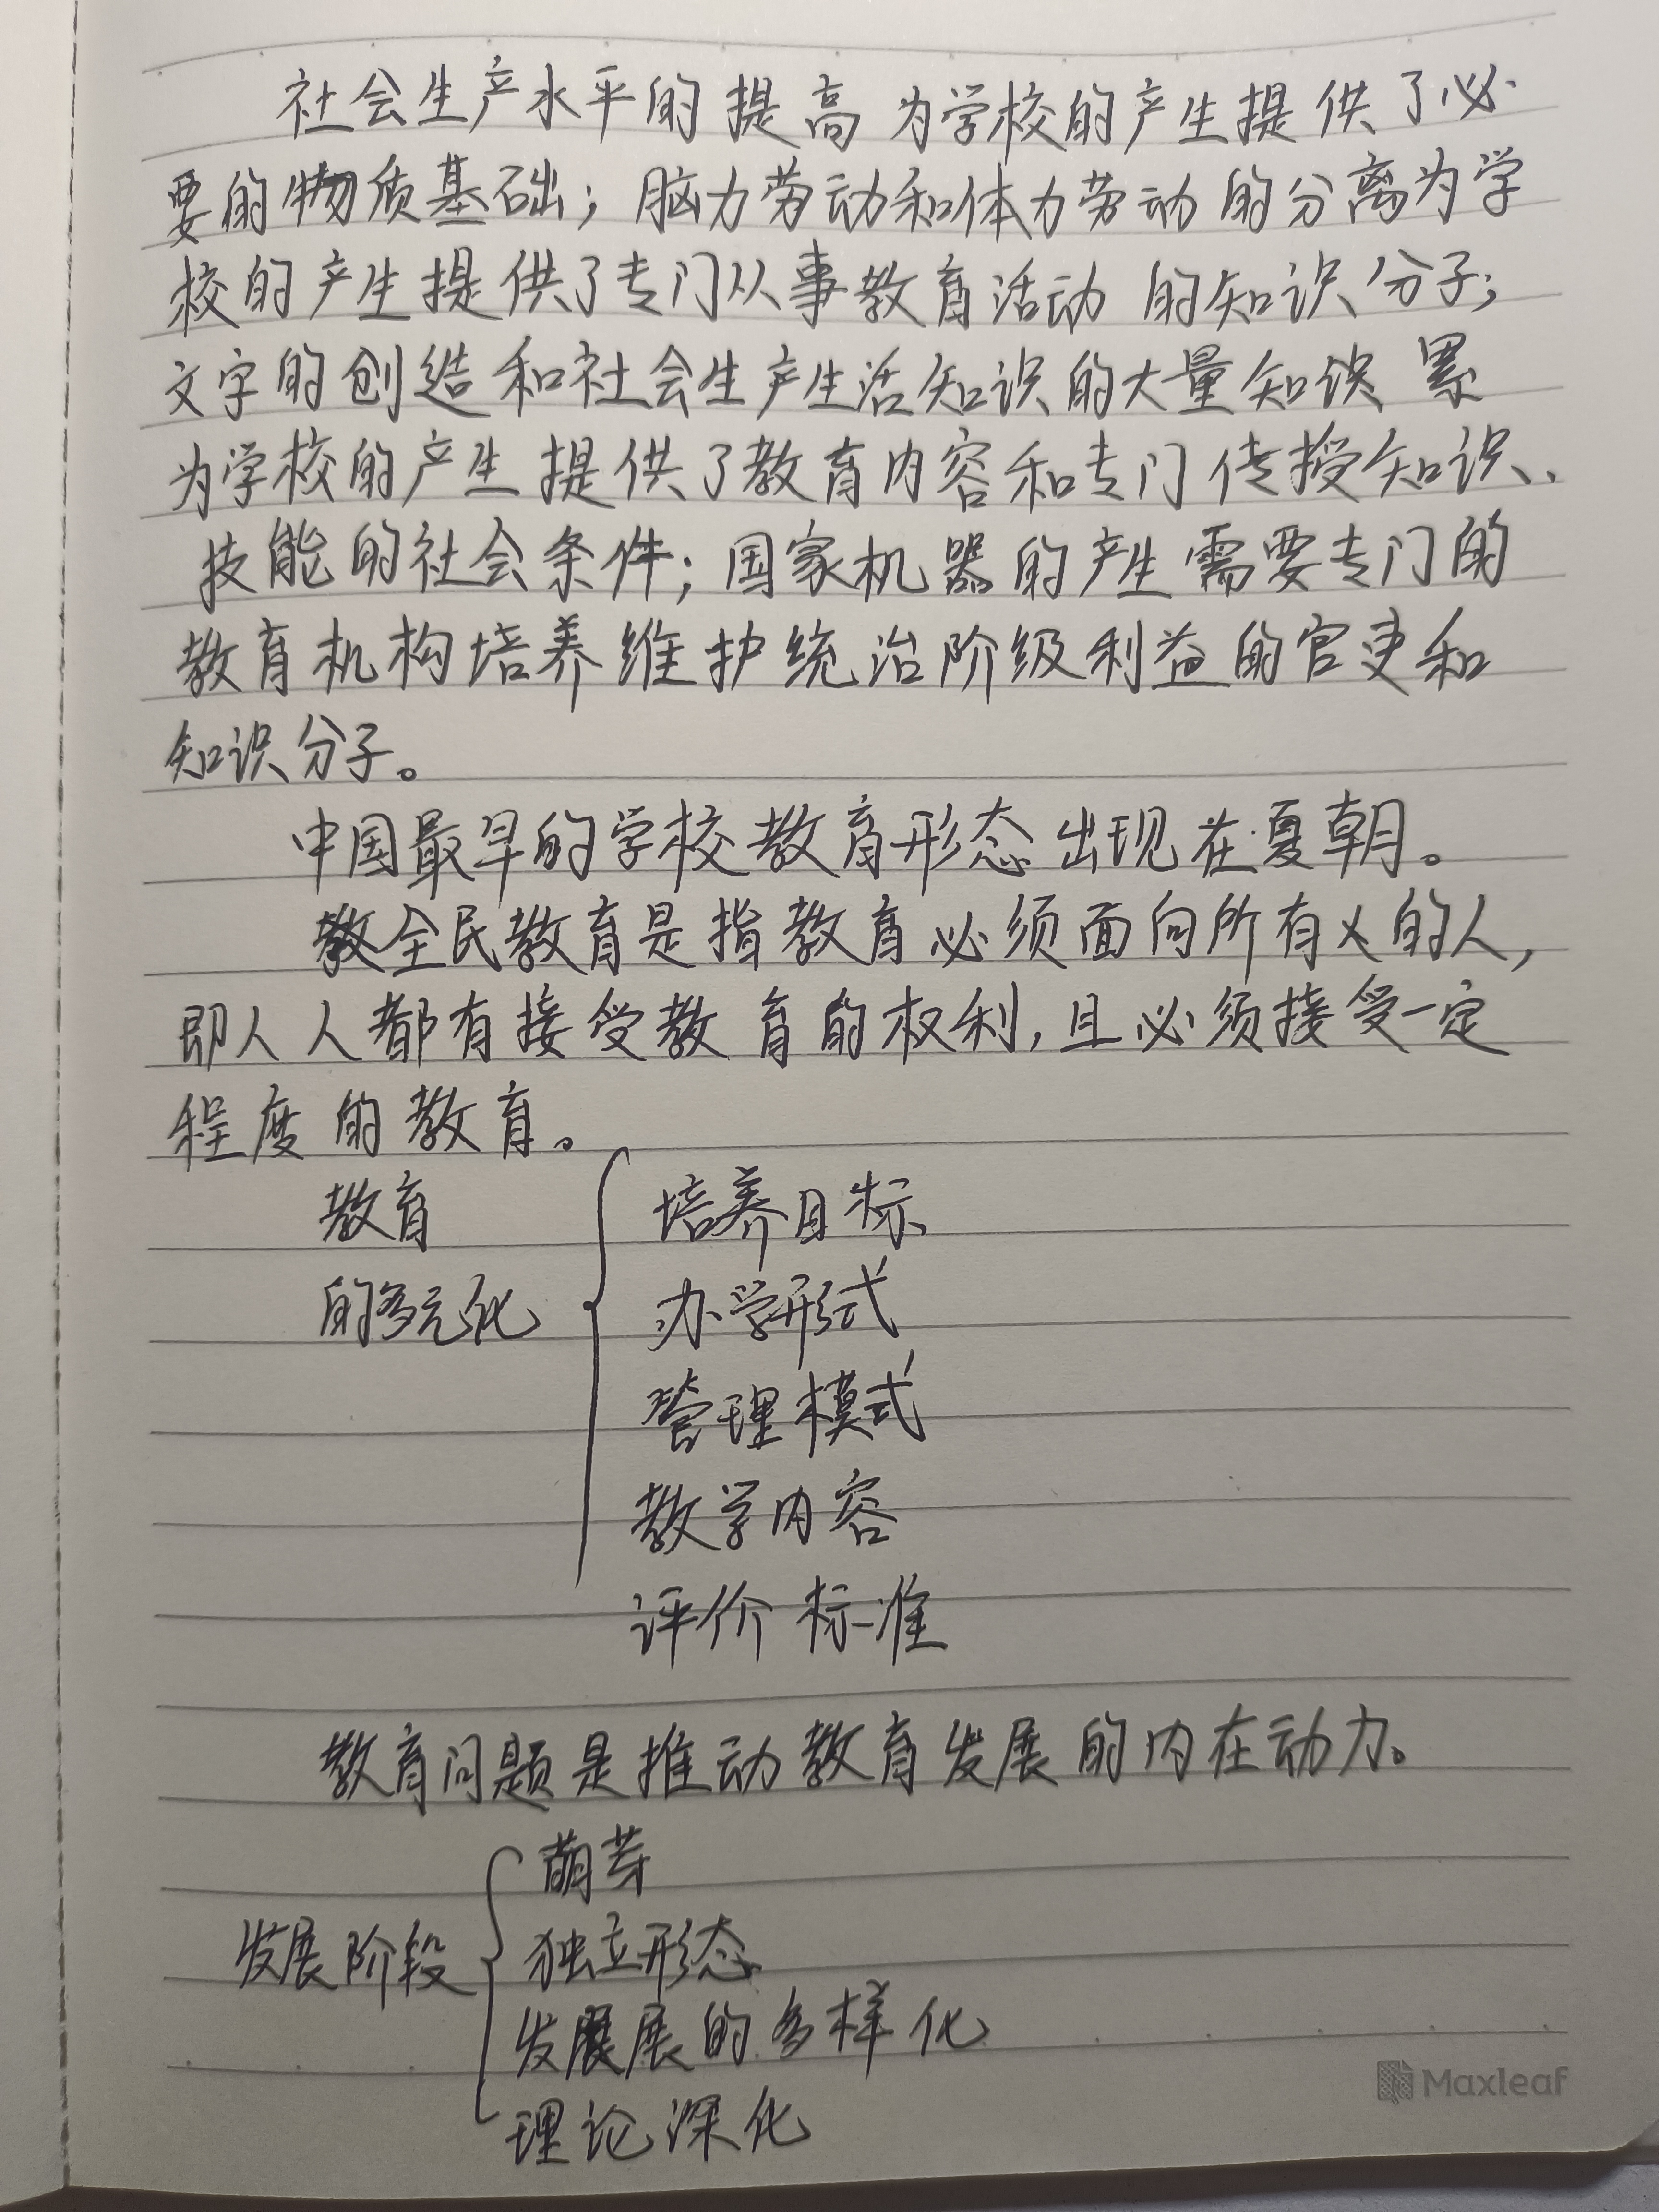 社会生产水平的提高为学校的产生提供了必
要的物质基础；脑力劳动和体力劳动的分离为学
校的产生提供了专门从事教育活动的知识分子；
文字的创造和社会生产生活知识的大量知识累
为学校的产生提供了教育内容和专门传授知识、
技能的社会条件；国家机器的产生需要专门的
教育机构培养维护统治阶级利益的官吏和
知识分子。
中国最早的学校教育形态出现在夏朝。
全民教育是指教育必须面向所有的人，
即人人都有接受教育的权利，且必须接受一定
程度的教育。
教育
的多元化
培养目标
办学形式
管理模式
教学内容
评价标准
教育问题是推动教育发展的内在动力。
发展阶段
萌芽
独立形态
发展的多样化
理论深化
Maxleaf